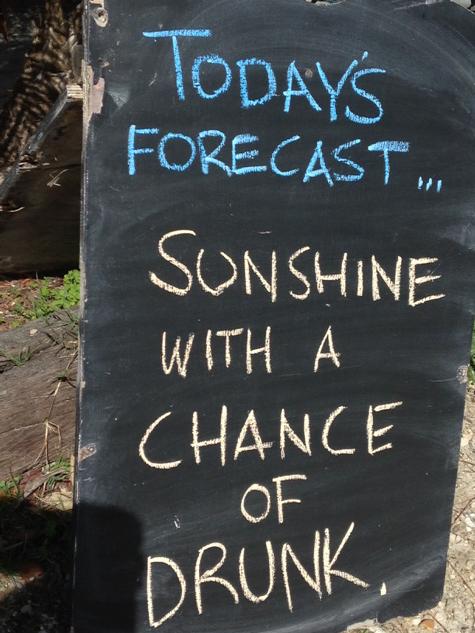 TODAY'S
FORECAST...
SUNSHINE
WITH A
CHANCE
OF
DRUNK.